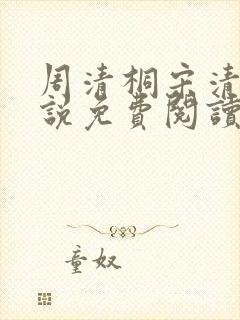 周清桐宋清
說免費閱讀
童奴